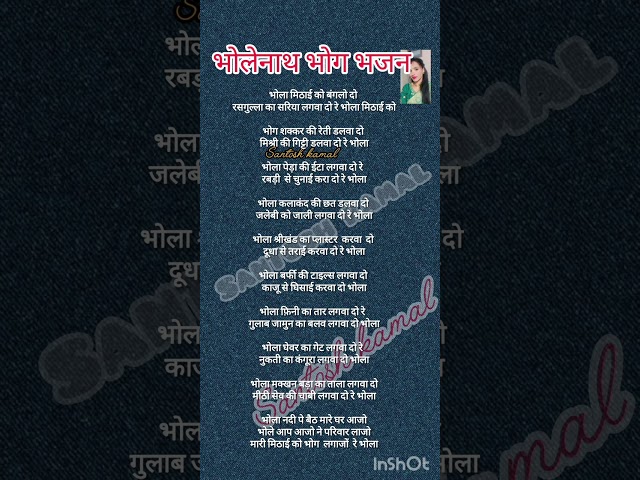 भोलेनाथ भोग भजन
भोला मिठाई को बंगलो दो
रसगुल्ला का सरिया लगवा दो रे भोला मिठाई को
भोग शक्कर की रेती डलवा दो
मिश्री की गिट्टी डलवा दो रे भोला
Santosh kamal
भोला पेड़ा की ईटा लगवा दो रे
रबड़ी से चुनाई करा दो रे भोला
भोला कलाकंद की छत डलवा दो
जलेबी को जाली लगवा दो रे भोला
भोला श्रीखंड का प्लास्टर करवा दो
दूधा से तराई करवा दो रे भोला
भोला बर्फी की टाइल्स लगवा दो
काजू से घिसाई करवा दो भोला
भोला फ्रिनी का तार लगवा दो रे
गुलाब जामुन का बलव लगवा दो भोला
भोला घेवर का गेट लगवा दो रे
नुकती का कंगूरा लगवा दो भोला
भोला मक्खन बड़ा का ताला लगवा दो
मीठी सेव की चाबी लगवा दो रे भोला
भोला नदी पे बैठ मारे घर आजो
भोले आप आजो ने परिवार लाजो
मारी मिठाई को भोग लगाजों रे भोला
SANTOSH KAMAL
Santosh kamal
InShOt